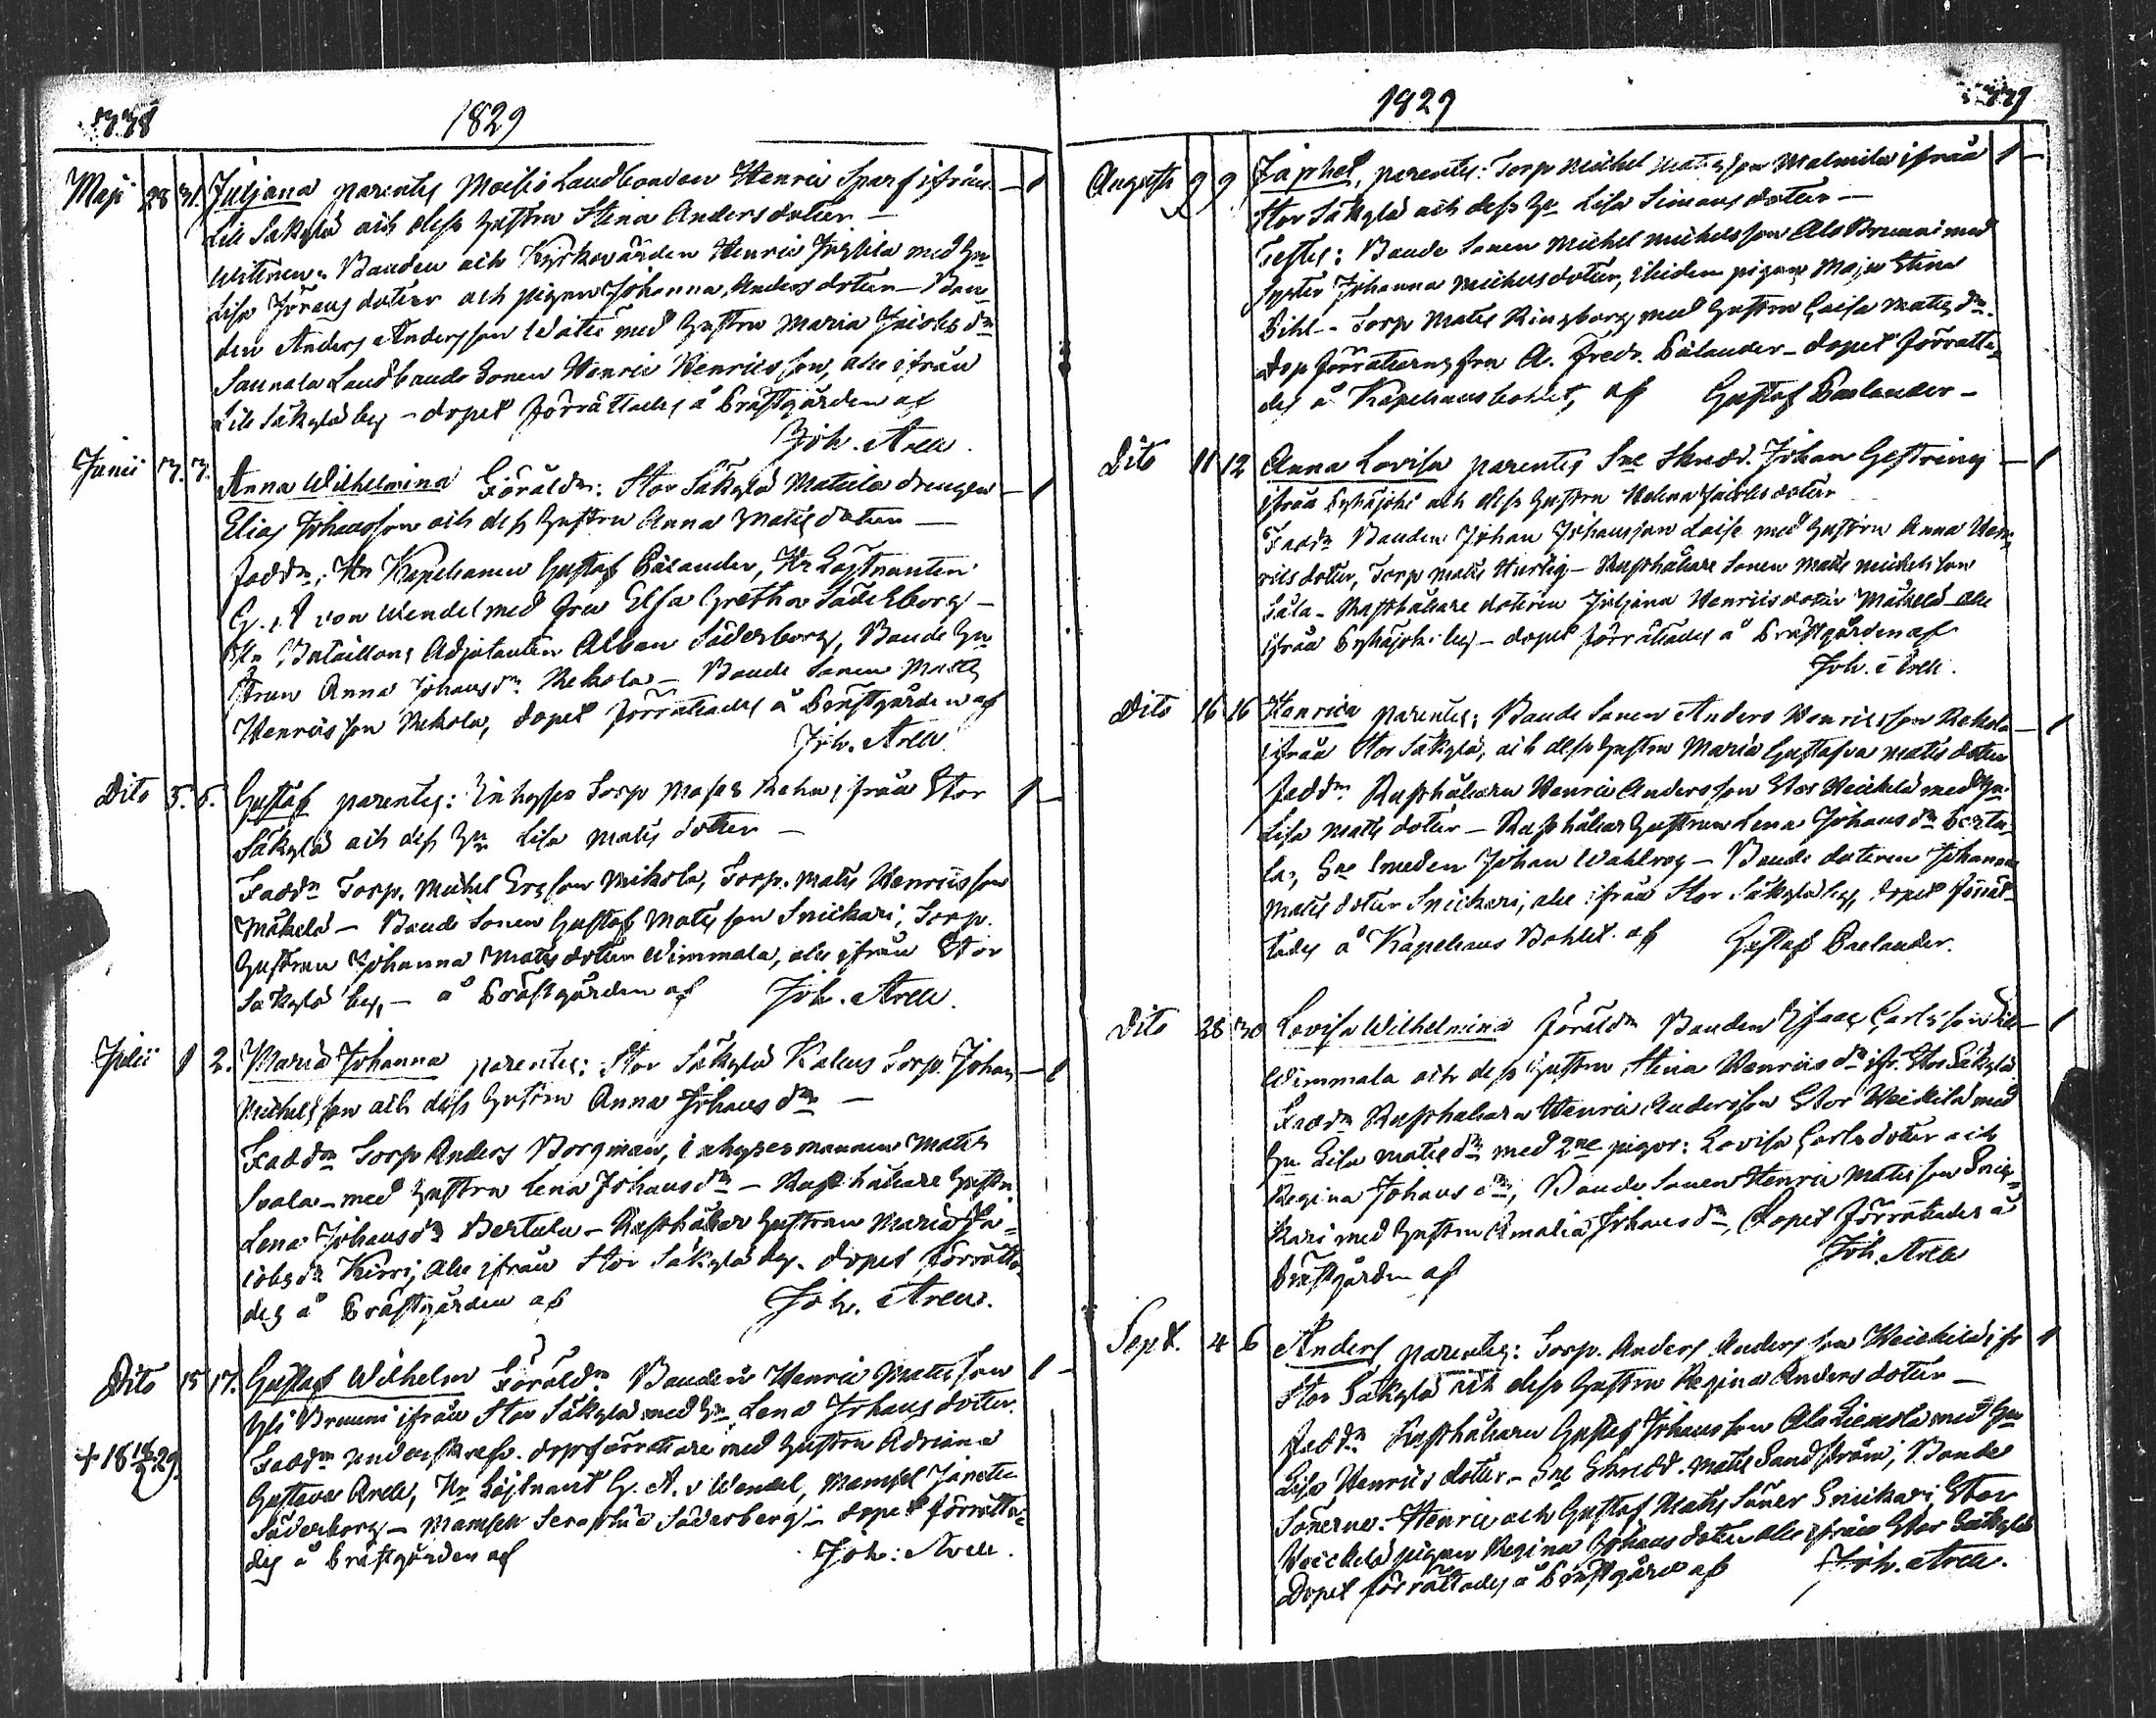 1829
Maji 28 31. Juljana parentes Moisio Landbonden Henric Sparf ifrån
Lill Säkylä och dess hustru Stina Andersdotter —
Wittnen: Bonden och Kyrkovärden Henric Jussila med hu
Lisa Jörans dotter och pigan Johanna Anders dotter — Bon
den Anders Andersson med hustru Maria Jacobs dr
Landbonde Sonen Henric Henricsson, alle ifrån
Lill Säkylä by — dopet förrättades å Prästgården af
Joh. Arell.
Junii 3. 3. Anna Wilhelmina Föräldr: Stor Säkylä Mattila drengen
Elias Johansson och dess hustru Anna Mats dotter —
Faddr: Hr Kapellanen Gustaf Pälander, Hr Löjtnanten
G. A von Wendel med fru Elsa Gretha Söderborg —
Hr Bataillons Adjutanten Alban Söderborg, Bonde hu
strun Anna Johansdr Rekola — Bonde Sonen Matts
Henricsson Rekola, dopet förrättades å Prästgården af
Joh. Arell
Dito 5. 6. Gustaf parentes: Inhyses Torp Moses ifrån Stor
Säkylä och dess hu Lisa Mats dotter —
Faddr Torp. Michel Ericsson Mikola, Torp. Mats Henricsson
Mäkelä — Bonde Sonen Gustaf Matsson Snickari, Torp.
hustrun Johanna Mats dotter Wimmala, alle ifrån Stor
Säkylä by, — å Prästgården af Joh. Arell.
Julii 1 2. Maria Johanna parentes: Stor Säkylä Torp. Johan
Michelsson och dess hustru Anna Johans dr —
Faddr Torp Anders Borgman, inhysesmannen Mats
med hustru Lena Johans dr — Rusthållare hustru
Lena Johans dr Bertula — Rusthållar hustrun Maria Ja=
cobs dr Kirri, alle ifrån Stor Säkylä by. dopet förrätta
des å Prästgården af Joh. Arell.
Dito 15 17. Gustaf Wilhelm Föräldr Bonden Henric Matsson
Yli Brunni ifrån Stor Säkylä med hu Lena Johans dotter.
+ 18 29. Faddr dopförrättare med hustru Adriana
Gustava Arell, Hr Löjtnant G. A. v Wendel, Mamsell
Söderborg — Mamsell Seraphia Söderberg — dopet förrätta=
des å Prästgården af Joh: Arell.
1829
Augusti 9 9 Japhet, parentes: Torp Michel Matsson Malmila ifrån
Stor Säkylä och dess hu Lisa Simons dotter —
Testes: Bonde Sonen Michel Michelsson Ala Brunni med
Syster Johanna Michelsdotter, ibidem pigan Maja Stina
Torp Matts Ringborg med hustru Caisa Mats dr.
Dop förrättarens fru A. Fredr. Pälander — dopet förrätta
des å Kapellansbohlet, af Gustaf Paelander —
Dito 11 12 Anna Lovisa parentes Sne Skredd. Johan Gestring
ifrån Pyhäjoki och dess hustru Helena Jacobs dotter
Faddr Bonden Johan Johansson med hustru Anna Hen=
rics dotter, Torp Mats Hurtig — Rusthållare Sonen Mats Michelsson
Rusthållare dotteren Juljana Henricsdotter Mäkelä alle
ifrån Pyhäjoki by — dopet förrättades å Prästgården af
Joh. Arell.
Dito 16 16 Henrica parentes: Bonde Sonen Anders Henricsson Rekola
ifrån Stor Säkylä, och dess hustru Maria Gustafva Mats dotter
Faddr Rusthållaren Henric Andersson Stor Heickilä med hu
Lisa Mats dotter — Rusthållar hustrun Lena Johans dr Bertu=
la, Sne Smeden Johan Wahlroos — Bonde dotteren Johanna
Mats dotter Snickari, alle ifrån Stor Säkylä by, dopet förrät=
tades å Kapellans Bohlet af Gustaf Paelander.
Dito 28 30 Lovisa Wilhelmina föräldr Bonden Isaac Carlsson
Wimmala och dess hustru Stina Henrics dr ifr. Stor Säkylä
Faddr Rusthållaren Henric Andersson Stor Heickilä med
hu Lisa Mats dr med 2ne pigor: Lovisa Carls dotter och
Regina Johans dr, Bonde Sonen Henric Matsson Snic=
kari med hustru Amalia Johans dr, Dopet förrättades å
Prästgården af Joh. Arell
Sept. 4 6 Anders parentes: Torp. Anders Andersson Heickilä ifr
Stor Säkylä och dess hustru Regina Anders dotter —
Faddr Rusthållaren Gustaf Johansson med hu
Lisa Henrics dotter — Sne Skredd. Mats Sandström, Bonde
Sönerne: Henric och Gustaf Mats Söner Snickari, Stor
Heickilä pigan Regina Johans dotter alle ifrån Stor Säkylä
Dopet förrättades å Prästgård af Joh. Arell.